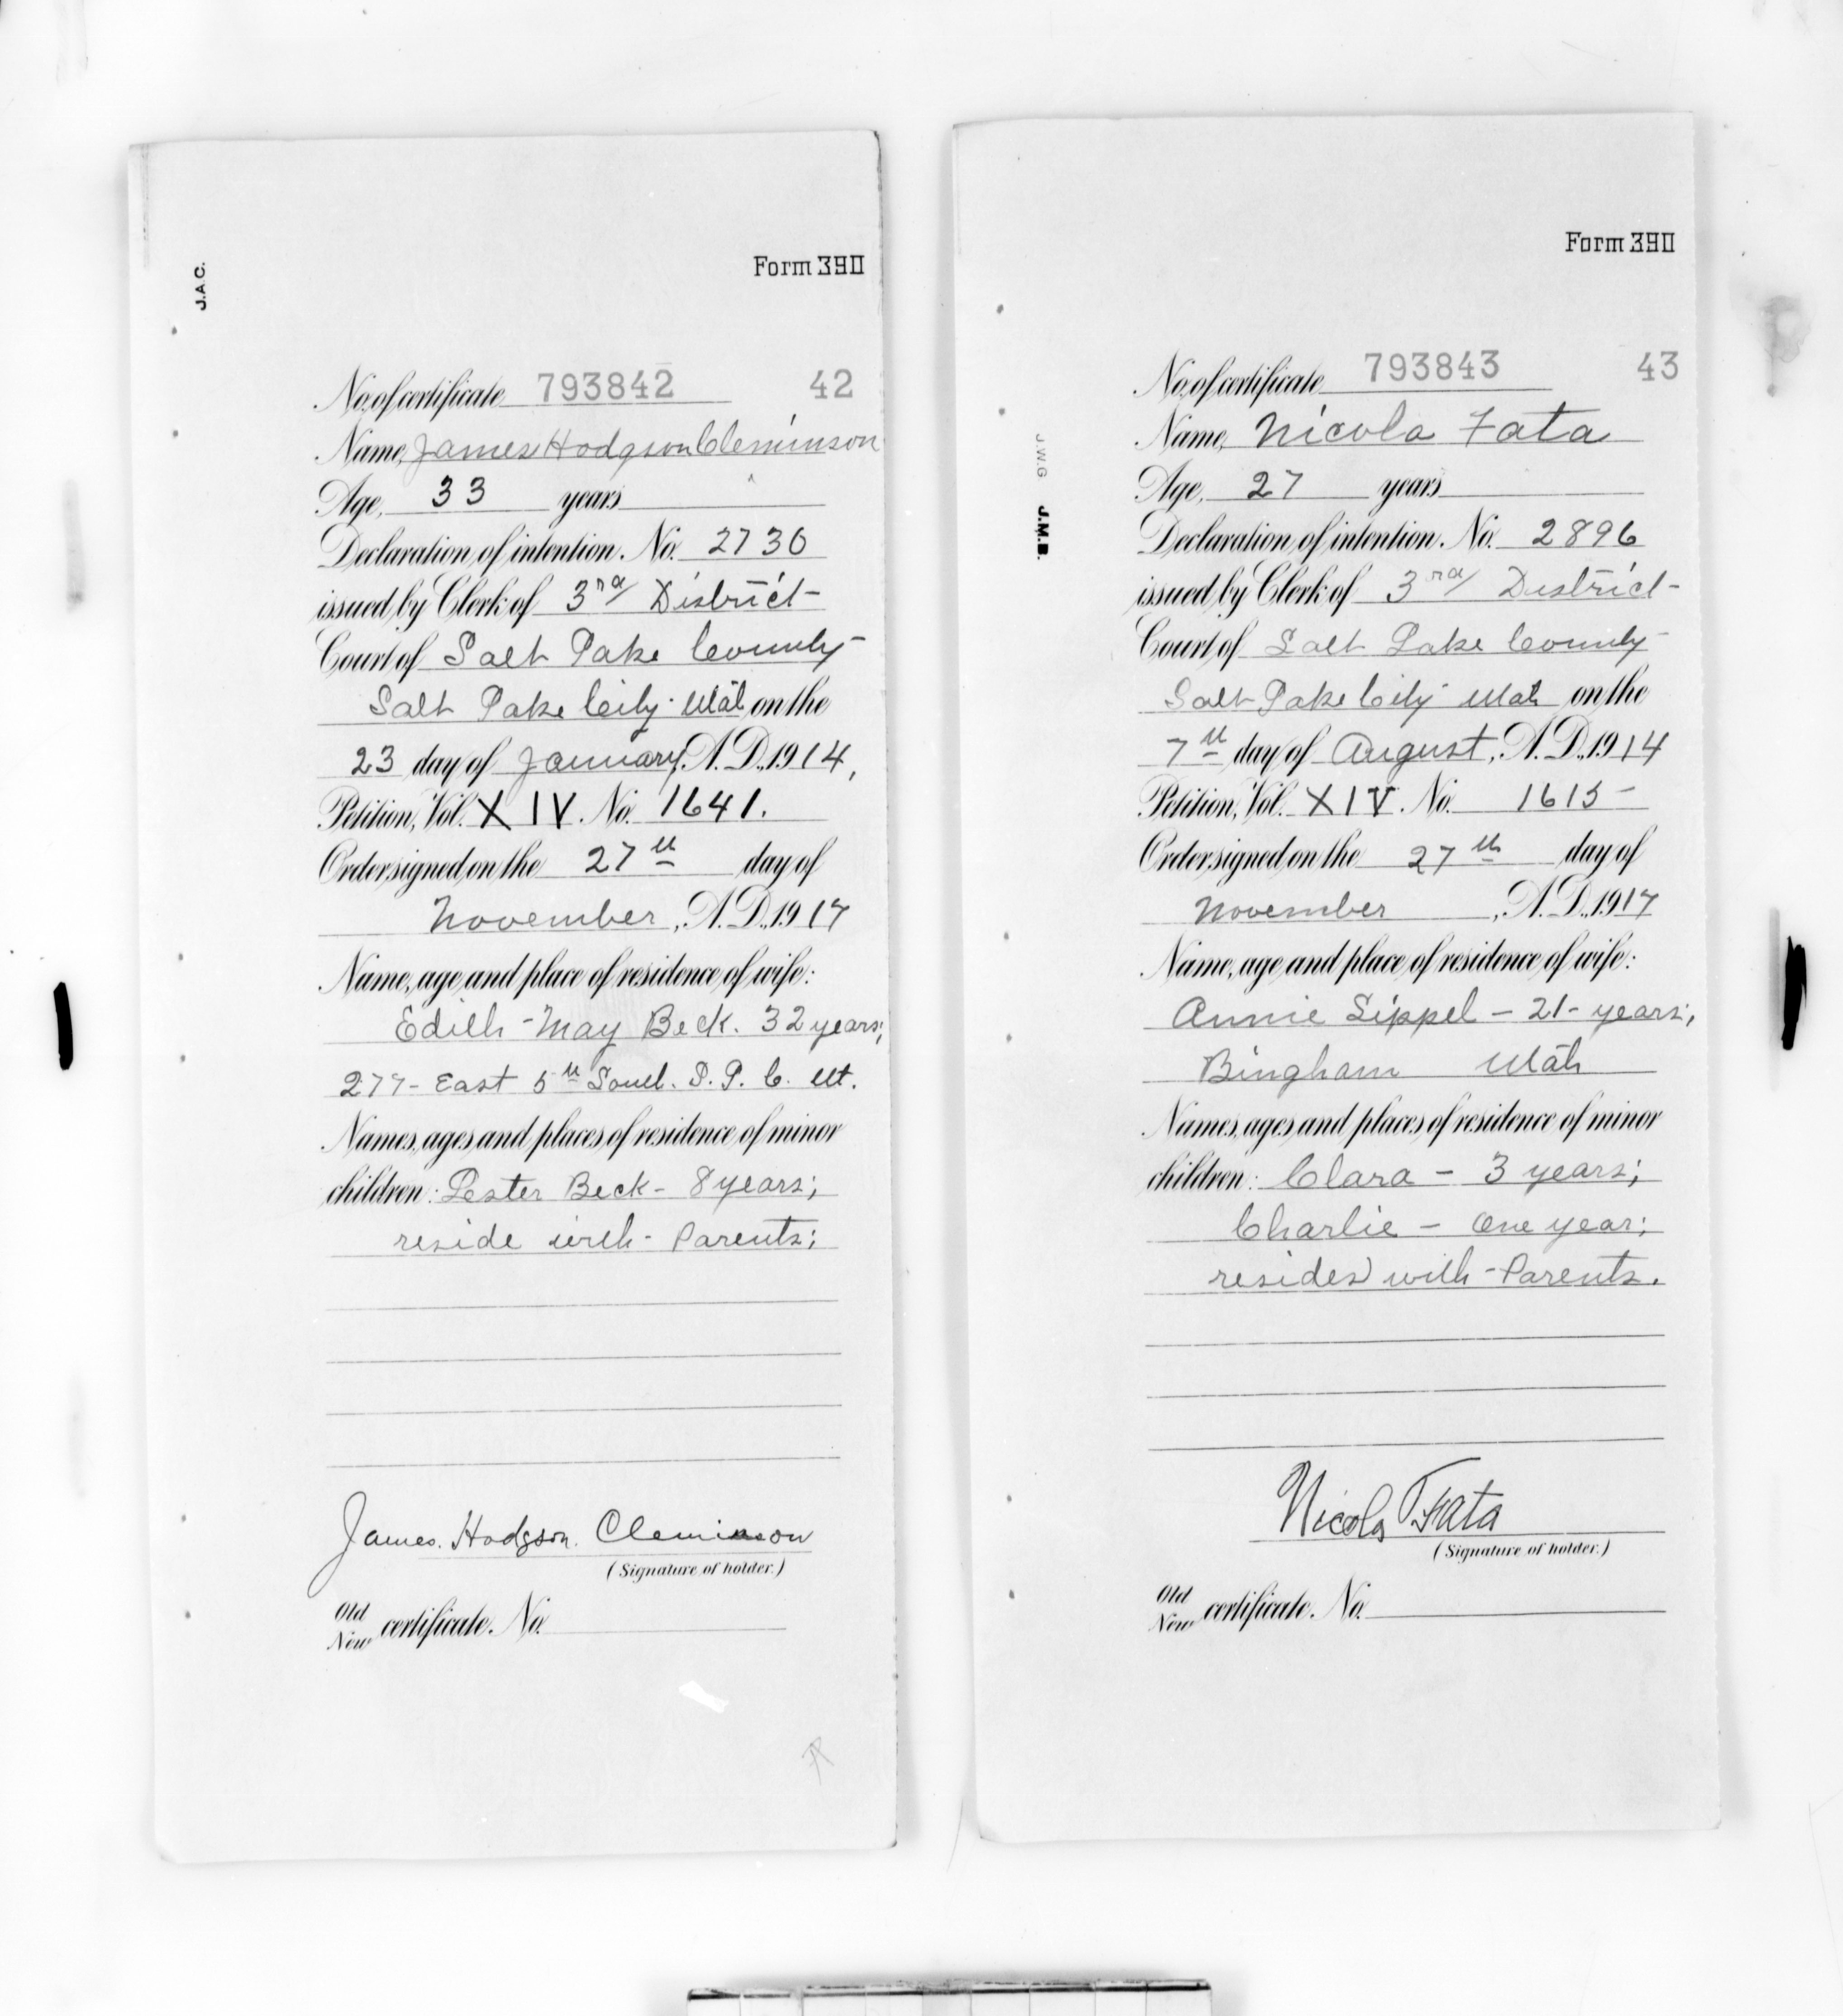 J.A.C.
Form 390
No. of certificate 793842 42
Name, James Hodgson Cleminson
Age, 33 years
Declaration of intention. No. 2730
issued by Clerk of 3rd District
Court of Salt Lake County
Salt Lake City Utah on the
23 day of January, A.D., 1914,
Petition, Vol. XIV. No. 1641.
Order signed on the 27th day of
November, A.D., 1917
Name, age and place of residence of wife:
Edith May Beck. 32 years;
277 - East 5th South. S. L. C. Ut.
Names, ages and places of residence of minor
children: Lester Beck - 8 years;
reside with Parents;
James. Hodgson. Cleminson
(Signature of holder.)
Old
New certificate. No.
Form 390
J.W.G J.M.B.
No. of certificate 793843 43
Name, Nicola Fata
Age, 27 years
Declaration of intention. No. 2896
issued by Clerk of 3rd District
Court of Salt Lake County
Salt Lake City Utah on the
7th day of August, A.D., 1914
Petition, Vol. XIV. No. 1615
Order signed on the 27th day of
November, A.D., 1917
Name, age and place of residence of wife:
Annie Sippel - 21 - years;
Bingham Utah
Names, ages and places of residence of minor
children: Clara - 3 years;
Charlie - one year;
resides with Parents.
Nicola Fata
(Signature of holder.)
Old
New certificate. No.